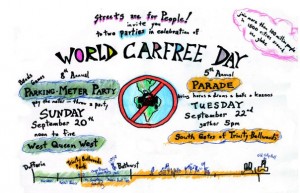 Streets are for People!
invite you
to two parties in celebration of
WORLD CARFREE DAY
Bands
Games
8th Annual
PARKING METER PARTY
pay the meter — throw a party
SUNDAY
September 20th
noon to five
West Queen West
5th Annual
PARADE
bring horns & drums & bells & kazoos
TUESDAY
September 22nd
gather 5pm
South Gates of Trinity Bellwoods
Dufferin
Trinity Bellwoods Park
Bathurst